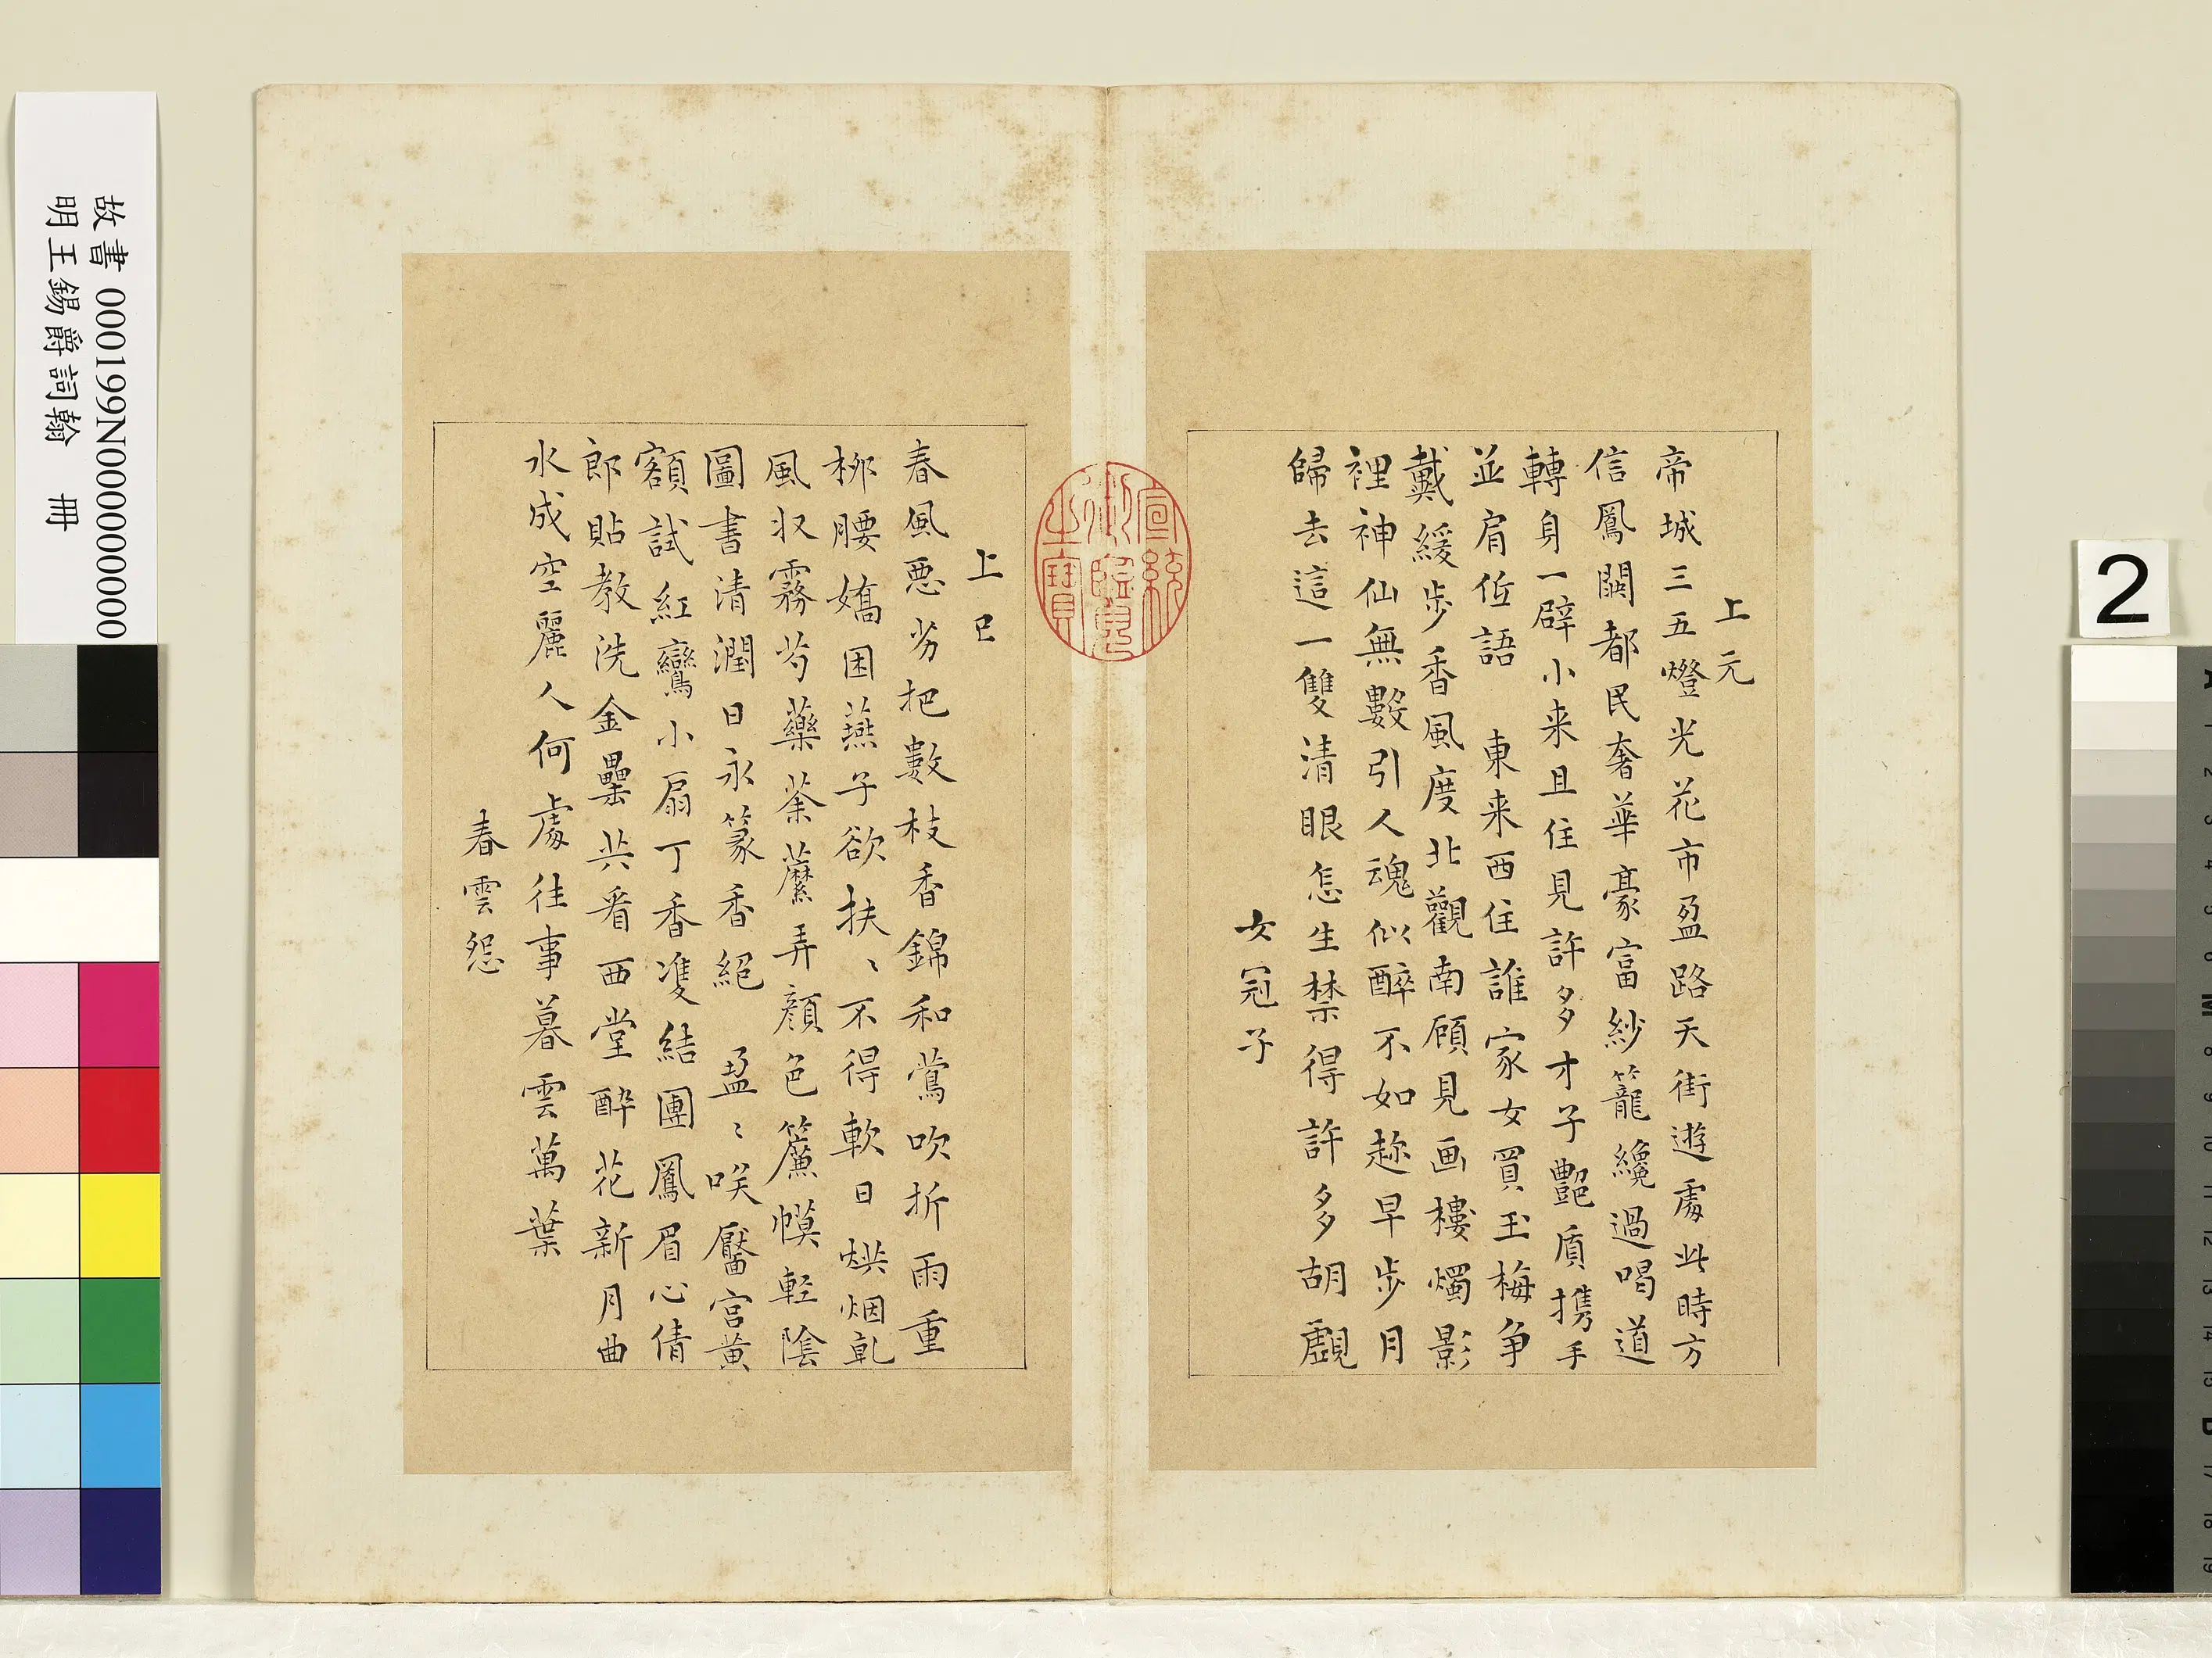 上元
帝城三五燈光花市盈路天街遊處此時方
信鳳闕都民奢華豪富紗籠纔過喝道
轉身一壁小来且住見許多才子艷質携手
並肩低語　東来西往誰家女買玉梅争
戴緩步香風度北觀南顧見画樓燭影
裡神仙無數引人魂似醉不如趂早步月
歸去這一雙清眼怎生禁得許多胡覷
女冠子
宣統御覽之寶
上巳
春風惡劣把數枝香錦和鶯吹折雨重
柳腰嬌困燕子欲扶、不得軟日烘烟乹
風収霧芍藥荼蘼弄顔色簾幙輕陰
圖書清潤日永篆香絕　盈〻咲靨宫黄
額試紅鸞小扇丁香雙結團鳳眉心倩
郎貼教洗金罍共看西堂醉花新月曲
水成空麗人何處往事暮雲萬葉
春雲怨
故書 000199N000000000
明王錫爵詞翰 冊
2